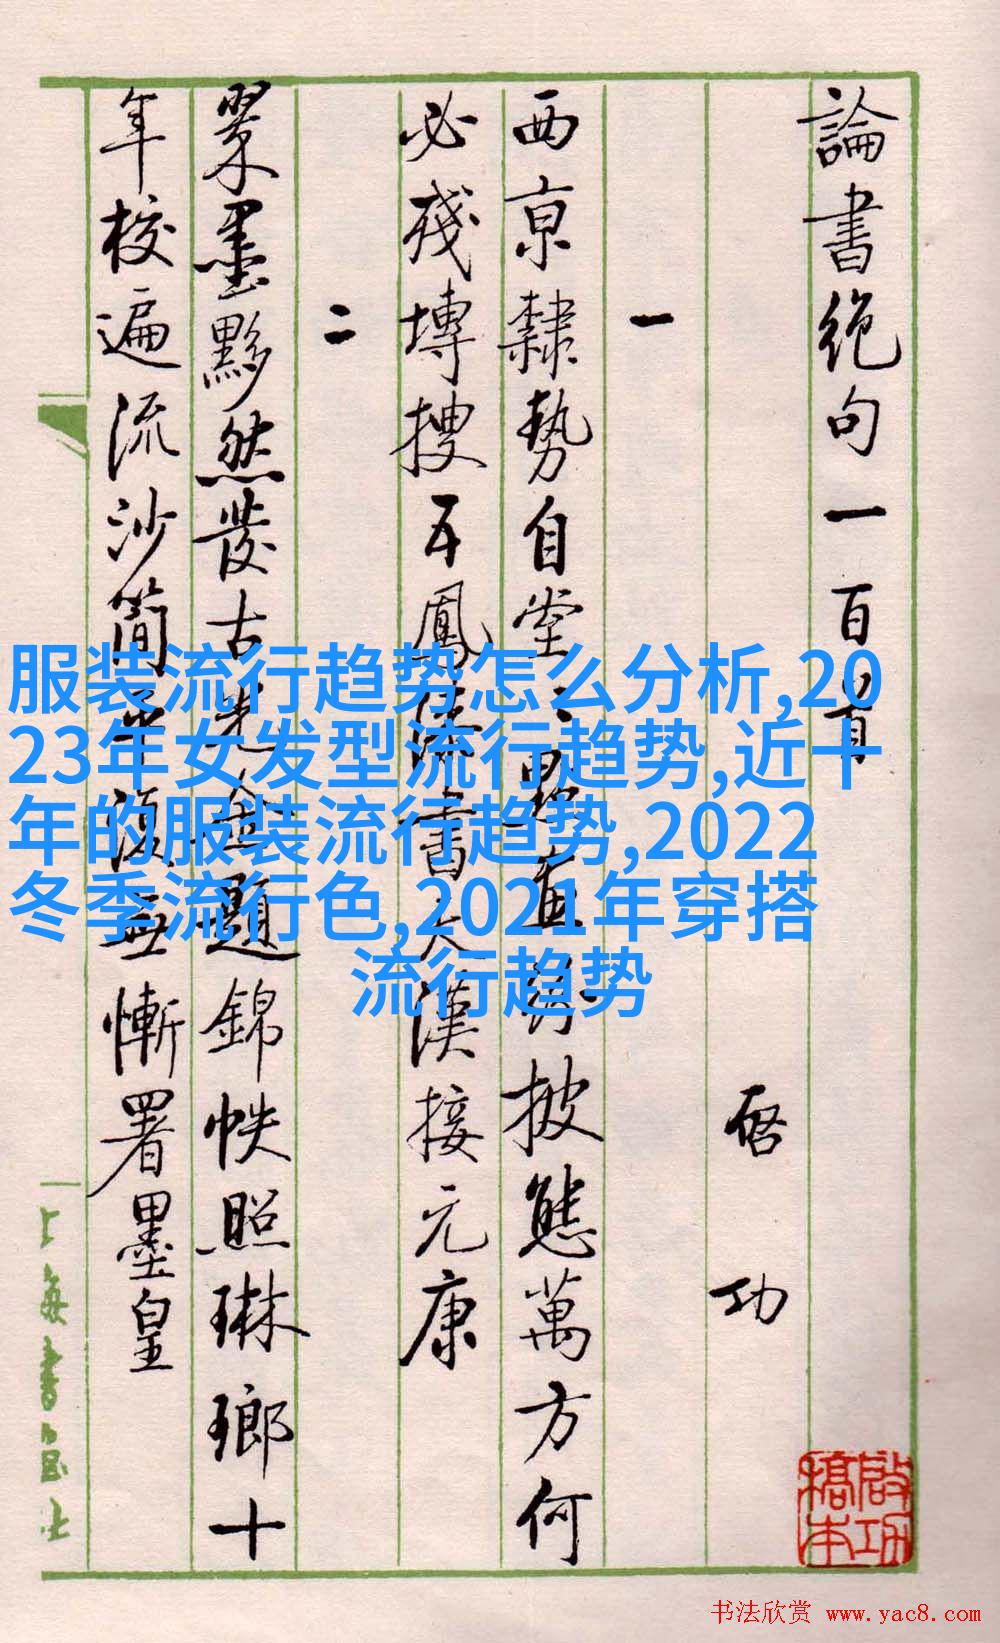 論書絕句一百首
啓功
一
西京隸勢自堂〻點畫紛披態萬方何
必殘塼搜五鳳漢書大漢接元康
二
翠墨黟然發古光金題錦帙照琳瑯十
年校遍流沙簡平復無慚署墨皇
啟功
稿本
上海書画社
服装流行趋势怎么分析,20
23年女发型流行趋势,近十
年的服装流行趋势,2022
冬季流行色,2021年穿搭
流行趋势
书法欣赏 www.yac8.com